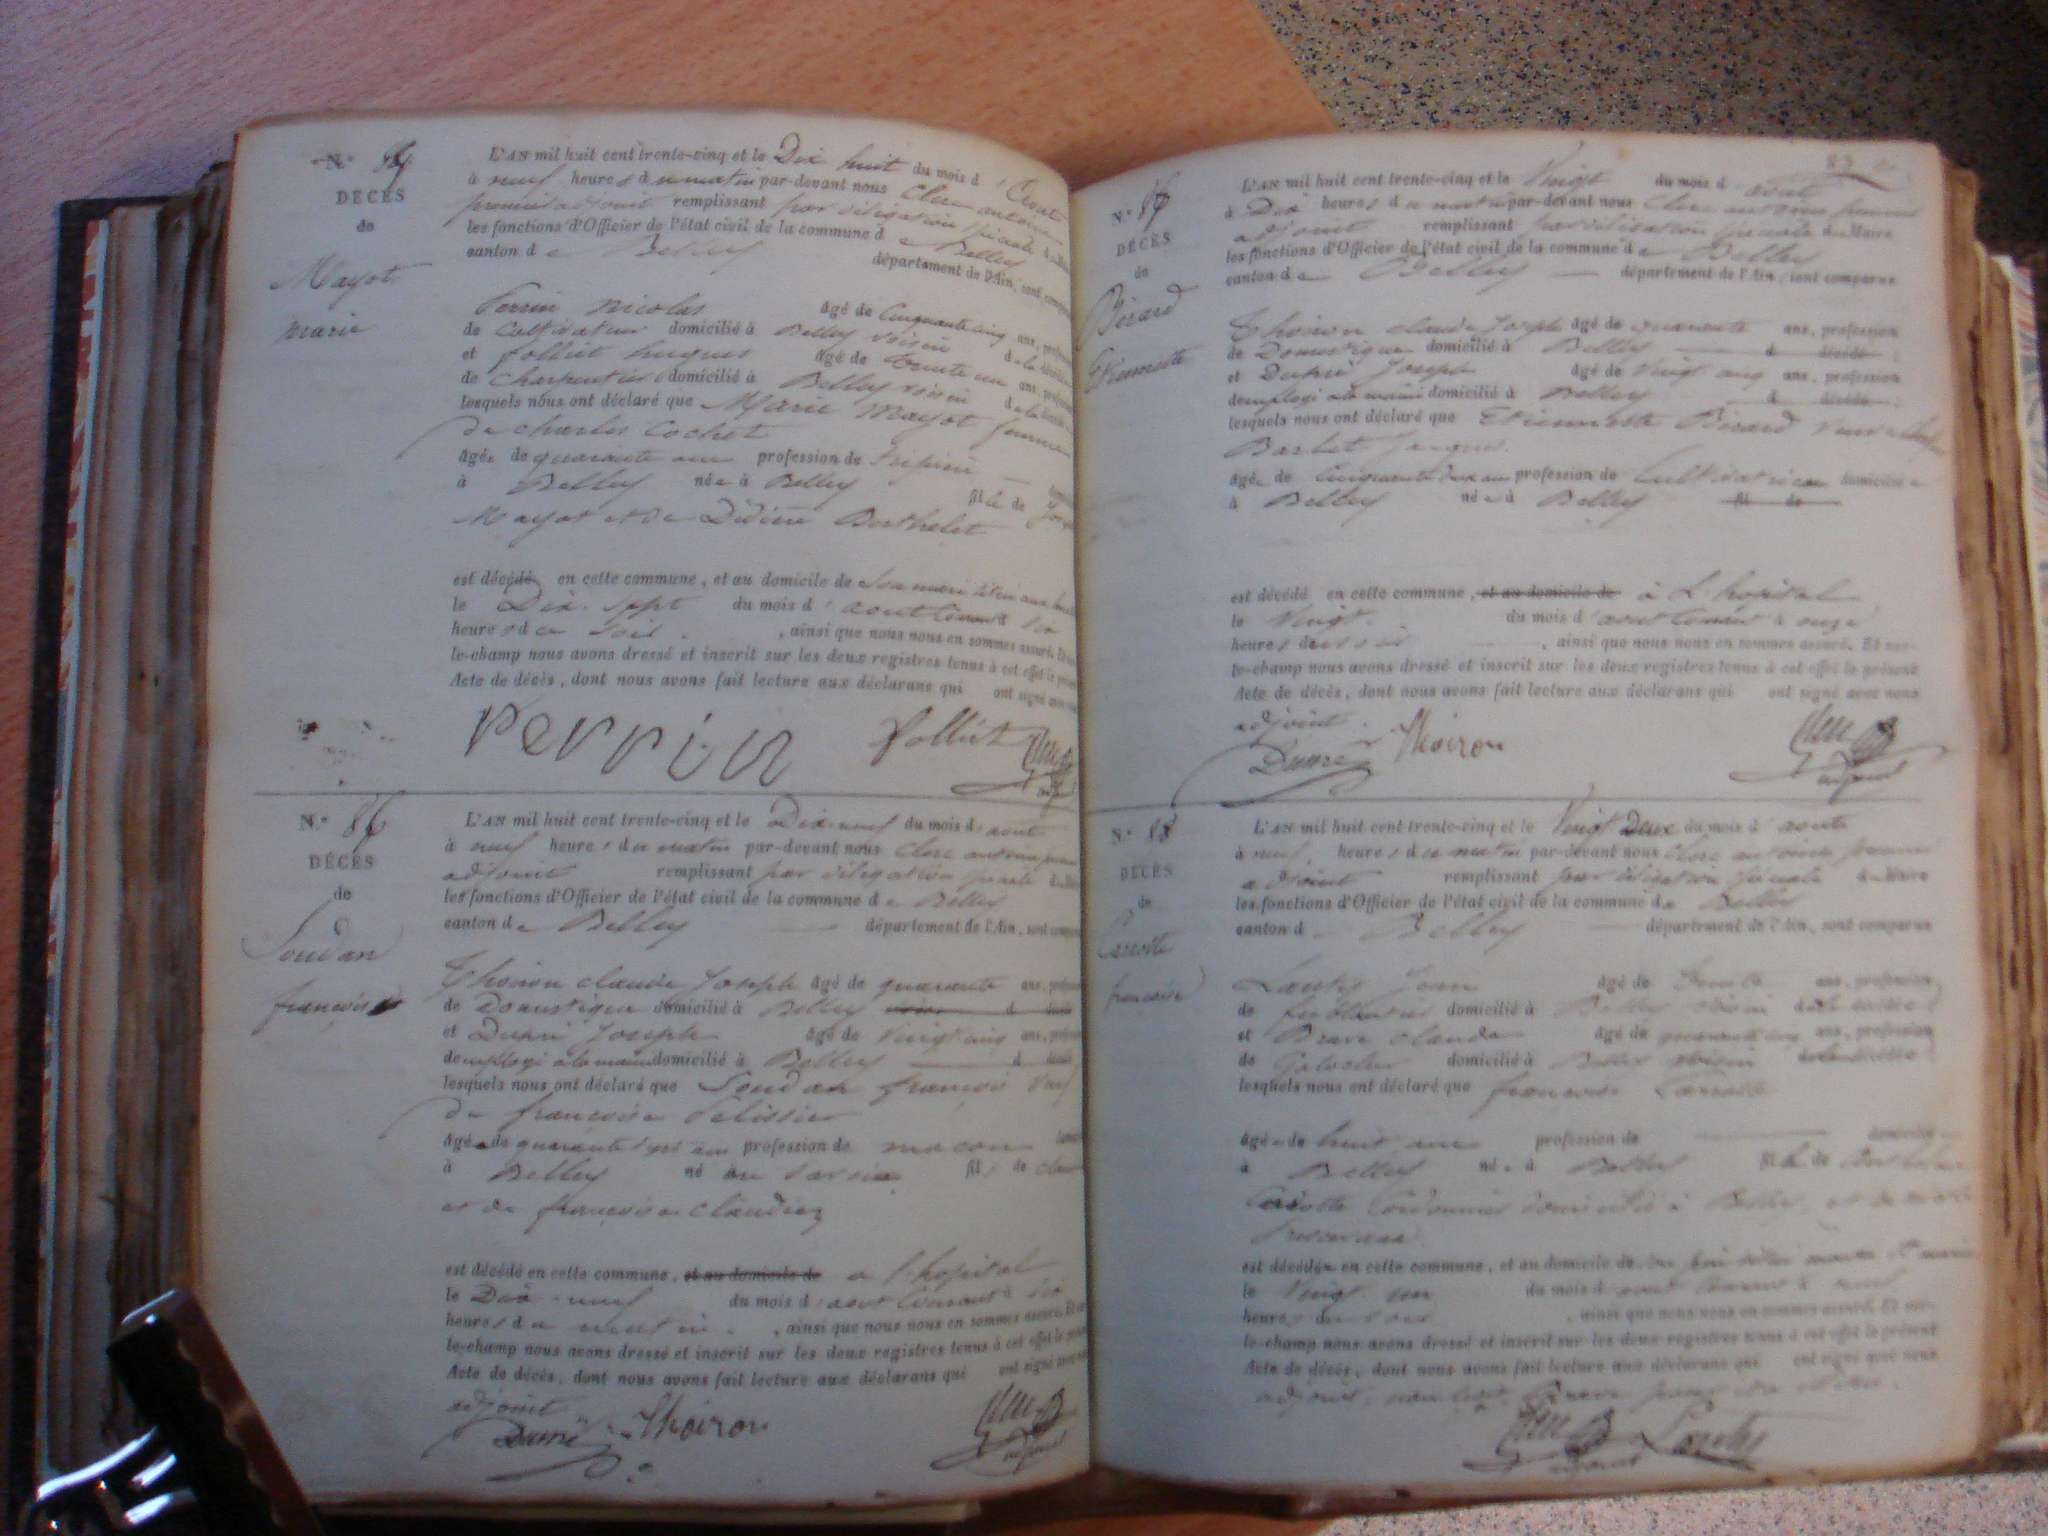 N.º
DÉCÈS
de
Mayot
marie
L'AN mil huit cent trente-cinq et le Dix huit du mois d'Aout
à neuf heures du matin par-devant nous Clerc antoine
premier adjoint remplissant par déligation spéciale du Maire
les fonctions d'Officier de l'état civil de la commune de Belley
canton de Belley département de l'Ain, sont comparus
Perrin nicolas âgé de Cinquante cinq ans, profession
de Cultivateur domicilié à Belley voisin de la décédée
et folliet hugues âgé de trente un ans, profession
de Charpentier domicilié à Belley voisin de la décédée
lesquels nous ont déclaré que Marie Mayot femme
de Charles Cochet
âgée de quarante ans profession de
à Belley née à Belley fille de
Mayot et de Didière Berthelet
est décédé en cette commune, et au domicile de Son mari
le Dix-Sept du mois d'aout Courant à
heures du Soir , ainsi que nous nous en sommes assuré. Et
le-champ nous avons dressé et inscrit sur les deux registres tenus à cet effet le présent
Acte de décès, dont nous avons fait lecture aux déclarans qui ont signé avec
Perrin folliet
N.º 86
DÉCÈS
de
Soudan
françois
L'AN mil huit cent trente-cinq et le Dix-neuf du mois d'aout
à neuf heures du matin par-devant nous Clerc antoine premier
adjoint remplissant par déligation spéciale du Maire
les fonctions d'Officier de l'état civil de la commune de Belley
canton de Belley département de l'Ain, sont comparus
Thoiron claude Joseph âgé de quarante ans, profession
de Domestique domicilié à Belley
et Dupré Joseph âgé de Vingt cinq ans, profession
d'employé à la mairie domicilié à Belley
lesquels nous ont déclaré que Soudan françois Veuf
de françoise Pelissier
âgé de quarante ans profession de macon
à Belley né en Savoie fils de
et de françoise Claudrez
est décédé en cette commune, et au domicile de a l'hopital
le Dix-neuf du mois d'aout Courant à
heures du matin , ainsi que nous nous en sommes assuré. Et
le-champ nous avons dressé et inscrit sur les deux registres tenus à cet effet le présent
Acte de décès, dont nous avons fait lecture aux déclarans qui ont signé avec nous
adjoint
Dupré Thoiron adjoint
83
N.º 87
DÉCÈS
de
Bérard
Etiennette
L'AN mil huit cent trente-cinq et le Vingt du mois d'aout
à Dix heures du matin par-devant nous Clerc antoine premier
adjoint remplissant par déligation spéciale du Maire
les fonctions d'Officier de l'état civil de la commune de Belley
canton de Belley département de l'Ain, sont comparus
Thoiron claude Joseph âgé de quarante ans, profession
de Domestique domicilié à Belley d décédé
et Dupré Joseph âgé de Vingt cinq ans, profession
d'employé à la mairie domicilié à Belley d décédé
lesquels nous ont déclaré que Etiennette Bérard Veuve de
Barbet Jacques
âgée de Cinquante deux ans profession de Cultivatrice domiciliée
à Belley née à Belley fil de
est décédé en cette commune, et au domicile de à L'hopital
le Vingt du mois d'aout Courant à onze
heures du soir , ainsi que nous nous en sommes assuré. Et sur-
le-champ nous avons dressé et inscrit sur les deux registres tenus à cet effet le présent
Acte de décès, dont nous avons fait lecture aux déclarans qui ont signé avec nous
adjoint
Dupré Thoiron adjoint
N.º 88
DÉCÈS
de
françoise
L'AN mil huit cent trente-cinq et le Vingt Deux du mois d'aout
à neuf heures du matin par-devant nous Clerc antoine premier
adjoint remplissant par déligation spéciale du Maire
les fonctions d'Officier de l'état civil de la commune de Belley
canton d Belley département de l'Ain, sont comparus
âgé de trente ans, profession
de ferblantier domicilié à Belley voisin de la décédée
et Brave claude âgé de quarante cinq ans, profession
de domicilié à Belley voisin de la décédée
lesquels nous ont déclaré que françoise
âgée de huit ans profession de domiciliée
à Belley née à Belley fille de
Cordonnier domicilié à Belley et de
est décédée en cette commune, et au domicile de
le Vingt un du mois d'aout Courant à neuf
heures du soir , ainsi que nous nous en sommes assuré. Et sur-
le-champ nous avons dressé et inscrit sur les deux registres tenus à cet effet le présent
Acte de décès, dont nous avons fait lecture aux déclarans qui ont signé avec nous
adjoint, non
adjoint